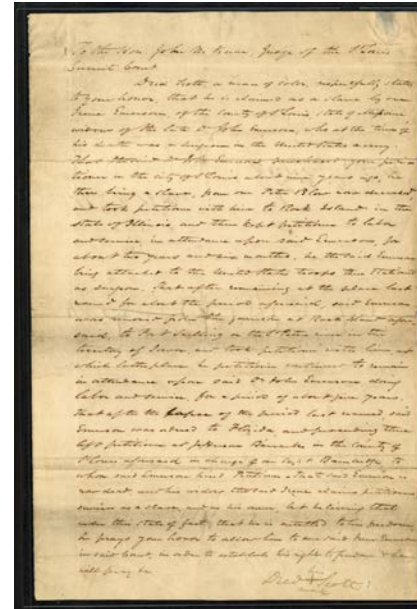 To the Hon. John M. Krum, Judge of the St Louis
Circuit Court
Dred Scott, a man of color, respectfully states
to your honor, that he is claimed as a slave by one
Irene Emerson, of the County of St Louis, State of Missouri,
widow of the late Dr John Emerson, who at the time of
his death was a surgeon in the United States army.
That the said Dr John Emerson purchased your peti-
tioner in the city of St Louis about nine years ago, he
then being a slave, from one Peter Blow now deceased,
and took petitioner with him to Rock Island in the
state of Illinois, and then kept petitioner to labor
and service, in attendance upon said Emerson, for
about two years and six months, he the said Emerson
being attached to the United States troops there stationed
as surgeon. That after remaining at the place last
named for about the period aforesaid, said Emerson
was removed from the garrison at Rock Island afore-
said, to Fort Snelling on the St Peters river in the
territory of Iowa, and took petitioner with him, at
which latter place the petitioner continued to remain
in attendance upon said Dr John Emerson doing
labor and service, for a period of about five years.
That after the lapse of the period last named, said
Emerson was ordered to Florida, and proceeding there
left petitioner at Jefferson Barracks in the county of
St Louis aforesaid in charge of one Capt Bainbridge, to
whom said Emerson hired Petitioner. That said Emerson is
now dead, and his widow the said Irene claims petitioners
services as a slave, and as his owner, but believing that
under this state of facts, that he is entitled to his freedom,
he prays your honor to allow him to sue said Irene Emerson
in said Court, in order to establish his right to freedom, &
will pray &c
his
Dred Scott
mark